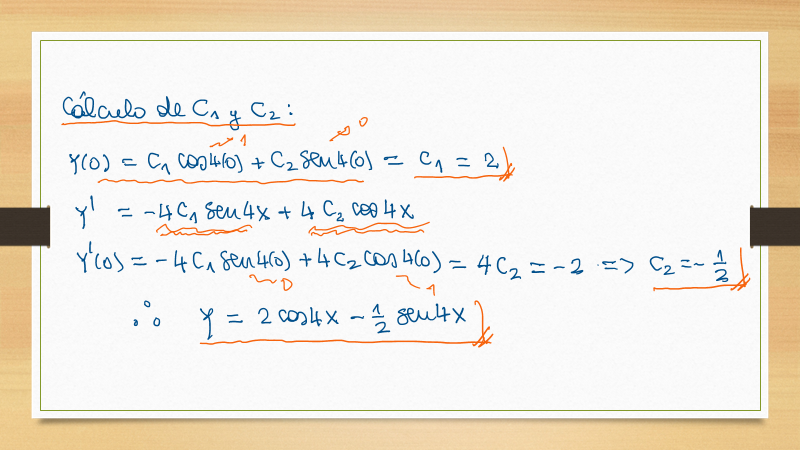 Cálculo de C₁ y C₂:
1 0
y(0) = C₁ cos4(0) + C₂ sen4(0) = C₁ = 2
y' = -4C₁ sen4x + 4C₂ cos4x
y'(0) = -4C₁ sen4(0) + 4C₂ cos4(0) = 4C₂ = -2 => C₂ = -1/2
0 1
∴ y = 2 cos4x - 1/2 sen4x